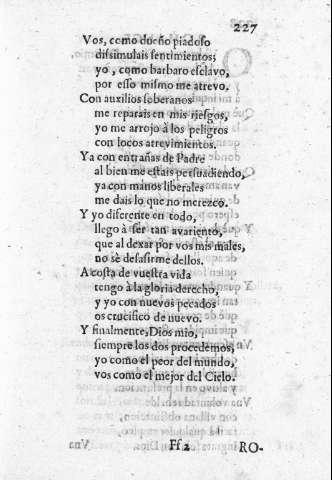 227
Vos, como dueño piadoſo
diſsimulais ſentimientos;
yo, como barbaro eſclavo,
por eſſo miſmo me atrevo.
Con auxilios ſoberanos
me reparais en mis rieſgos,
yo me arrojo à los peligros
con locos atrevimientos.
Ya con entrañas de Padre
al bien me eſtais perſuadiendo,
ya con manos liberales
me dais lo que no merezco.
Y yo diferente en todo,
llego à ſer tan avariento,
que al dexar por vos mis males,
no sè deſaſirme dellos.
A coſta de vueſtra vida
tengo à la gloria derecho,
y yo con nuevos pecados
os crucifico de nuevo.
Y finalmente, Dios mio,
ſiempre los dos procedemos,
yo como el peor del mundo,
vos como el mejor del Cielo.
Ff2 RO-